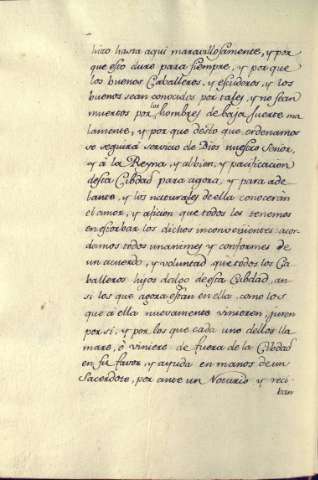 hizo hasta aqui maravillosamente, y por
que esto dure para siempre, y por que
los buenos Caballeros, y escuderos, y los
buenos sean conocidos por tales, y no sean
muertos por los hombres de baja suerte ma
lamente, y por que desto que ordenamos
se seguirá servicio de Dios nuestro Señor,
y á la Reyna, y al bien, y pacificacion
desta Cibdad para agora, y para ade
lante, y los naturales de ella conoceran
el amor, y aficion que todos les tenemos
en estorbar los dichos inconvenientes: acor
damos todos unanimes y conformes de
un acuerdo, y voluntad que todos los Ca
balleros hijos dalgo de esta Cibdad, an
si los que agora estan en ella, como los
que a ella nuevamente vinieren, juren
por si, y por los que cada uno dellos lla
mare, ó viniere de fuera de la Cibdad
en su favor, y ayuda en manos de un
Sacerdote, por ante un Notario y reci
ban